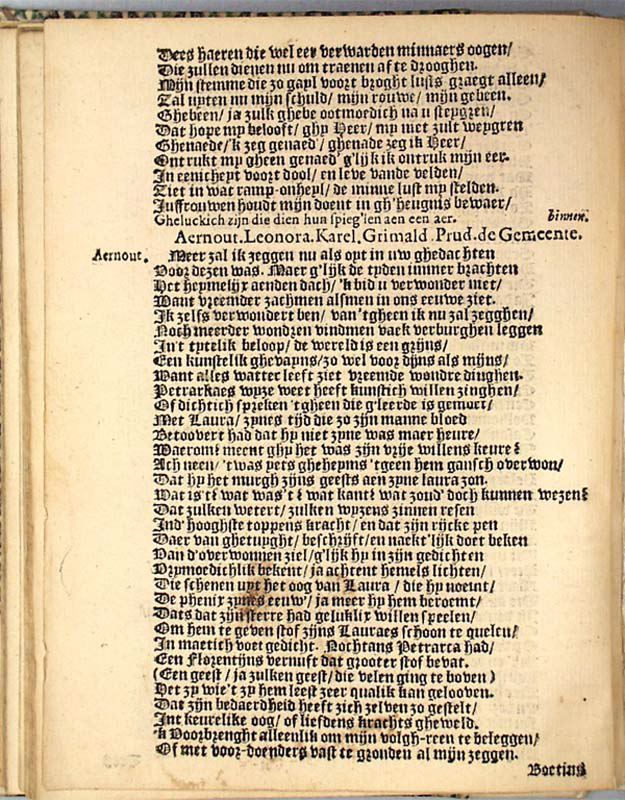 Dees haeren die wel eer verwarden minnaers oogen/
Die zullen dienen nu om traenen af te drooghen.
Mijn stemme die zo gayl voort broght lusts graegt alleen/
Zal uyten nu mijn schuld/ mijn rouwe/ mijn gebeen.
Ghebeen/ ja zulk ghebe ootmoedich na u steygren/
Dat hope my belooft/ ghy Heer/ my niet zult weygren
Ghenaede/ 'k zeg genaed/ ghenade zeg ik Heer/
Ontrukt my gheen genaed g'lijk ik ontruk mijn eer.
In eenicheyt voort dool/ en leve vande velden/
Ziet in wat ramp-onheyl/ de minne lust my stelden.
Juffrouwen houdt mijn doent in gh'heugnis bewaer/
Gheluckich zijn die dien hun spieg'len aen een aer. binnen.
Aernout. Leonora. Karel. Grimald. Prud. de Gemeente.
Aernout. Meer zal ik zeggen nu als oyt in uw ghedachten
Voor dezen was. Maer g'lijk de tyden immer brachten
Het heymelijx aenden dach/ 'k bid u verwonder niet/
Want vreemder zachmen alsmen in ons eeuwe ziet.
Ik zelfs verwondert ben/ van 'tgheen ik nu zal zegghen/
Noch meerder wondren vindmen vaek verburghen leggen
In't tytelik beloop/ de wereld is een grijns/
Een kunstelik ghevayns/ zo wel voor dijns als mijns/
Want alles watter leeft ziet vreemde wondre dinghen.
Petrarkaes wyze weet heeft kunstich willen zinghen/
Of dichtich spreken 'tgheen die g'leerde is gemoet/
Met Laura/ zynes tijd die zo zijn manne bloed
Betoovert had dat hy niet zyne was maer heure/
Waerom? meent ghy het was zijn vrije willens keure?
Ach neen/ 't was yets gheheyms 'tgeen hem gansch overwon/
Dat hy het murgh zijns geests aen zyne laura zon.
Wat is't? wat was't? wat kant? wat zoud' doch kunnen wezen?
Dat zulken wetert/ zulken wyzens zinnen resen
Ind' hooghste toppens kracht/ en dat zijn rijcke pen
Daer van ghetuyght/ beschrijft/ en naekt'lijk doet beken
Van d'overwonnen ziel/ g'lijk hy in zijn gedichten
Drymoedichlik bekent/ ja achtent hemels lichten/
Die schenen uyt het oog van Laura/ die hy noemt/
De phenix zynes eeuw'/ ja meer hy hem beroemt/
Dats dat zijn sterre had geluklix willen speelen/
Om hem te geven stof zijns Lauraes schoon te quelen/
In maetich voet gedicht. Nochtans Petrarca had/
Een Florentijns vernuft dat grooter stof bevat.
(Een geest/ ja zulken geest/ die velen ging te boven)
Het zy wie't zy hem leest zeer qualik kan gelooven.
Dat zijn bedaerdheid heeft zich zelven zo gestelt/
Int keurelike oog/ of liefdens krachts gheweld.
'k Voorbrenght alleenlik om mijn volgh-reen te beleggen/
Of met voor-doenders vast te gronden al mijn zeggen.
Boetius